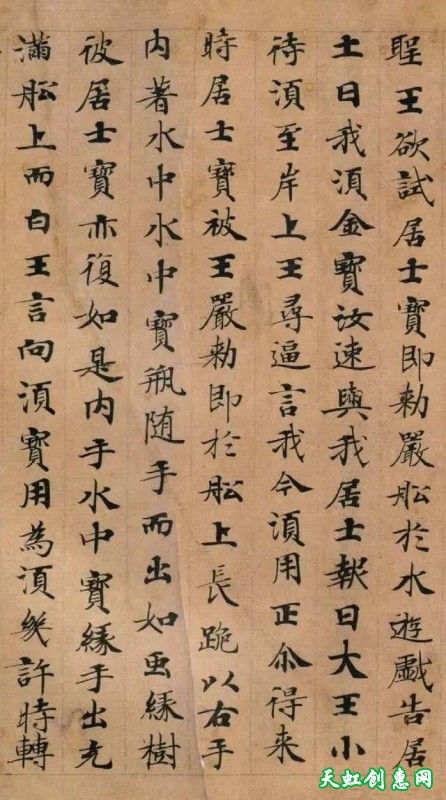 聖王欲試居士寶即勑嚴舩於水遊戲告居
士曰我湏金寶汝速與我居士報曰大王小
待湏至岸上王尋逼言我今湏用正尒得來
時居士寶被王嚴勑即於舩上長跪以右手
内著水中水中寶瓶随手而出如虫緣樹
彼居士寶亦復如是内手水中寶緣手出充
滿舩上而白王言向湏寶用為湏幾許時轉
天虹创惠网